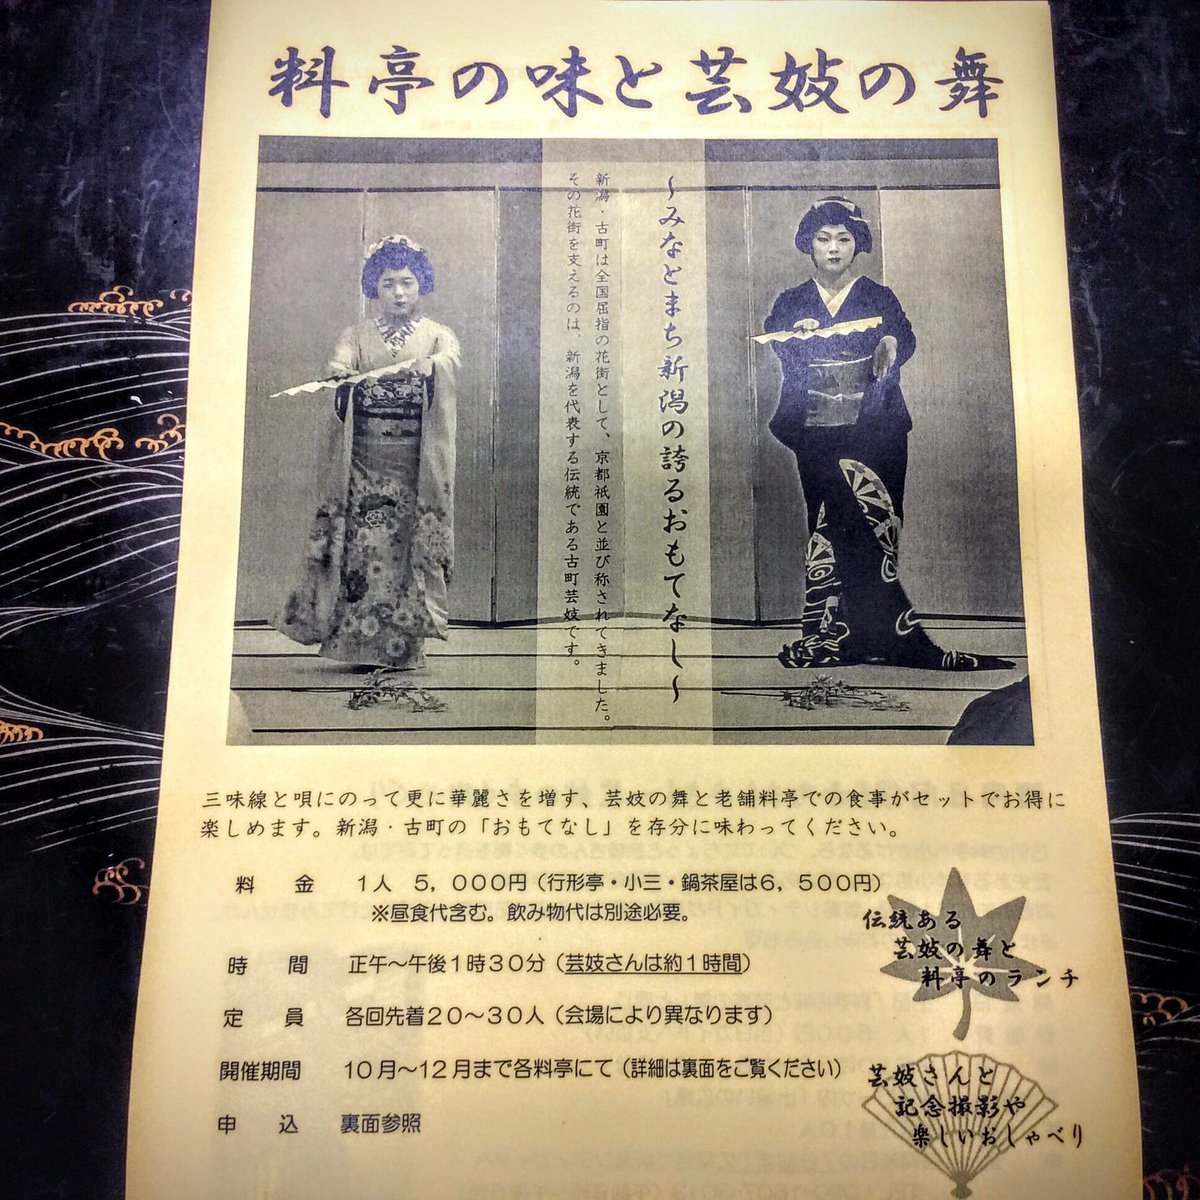 料亭の味と芸妓の舞
～みなとまち新潟の誇るおもてなし～
新潟・古町は全国屈指の花街として、京都祇園と並び称されてきました。
その花街を支えるのは、新潟を代表する伝統である古町芸妓です。
三味線と唄にのって更に華麗さを増す、芸妓の舞と老舗料亭での食事がセットでお得に
楽しめます。新潟・古町の「おもてなし」を存分に味わってください。
料　金　1人　5，000円（行形亭・小三・鍋茶屋は6，500円）
※昼食代含む。飲み物代は別途必要。
時　間　正午～午後1時30分（芸妓さんは約1時間）
定　員　各回先着20～30人（会場により異なります）
開催期間　10月～12月まで各料亭にて（詳細は裏面をご覧ください）
申　込　裏面参照
伝統ある
芸妓の舞と
料亭のランチ
芸妓さんと
記念撮影や
楽しいおしゃべり